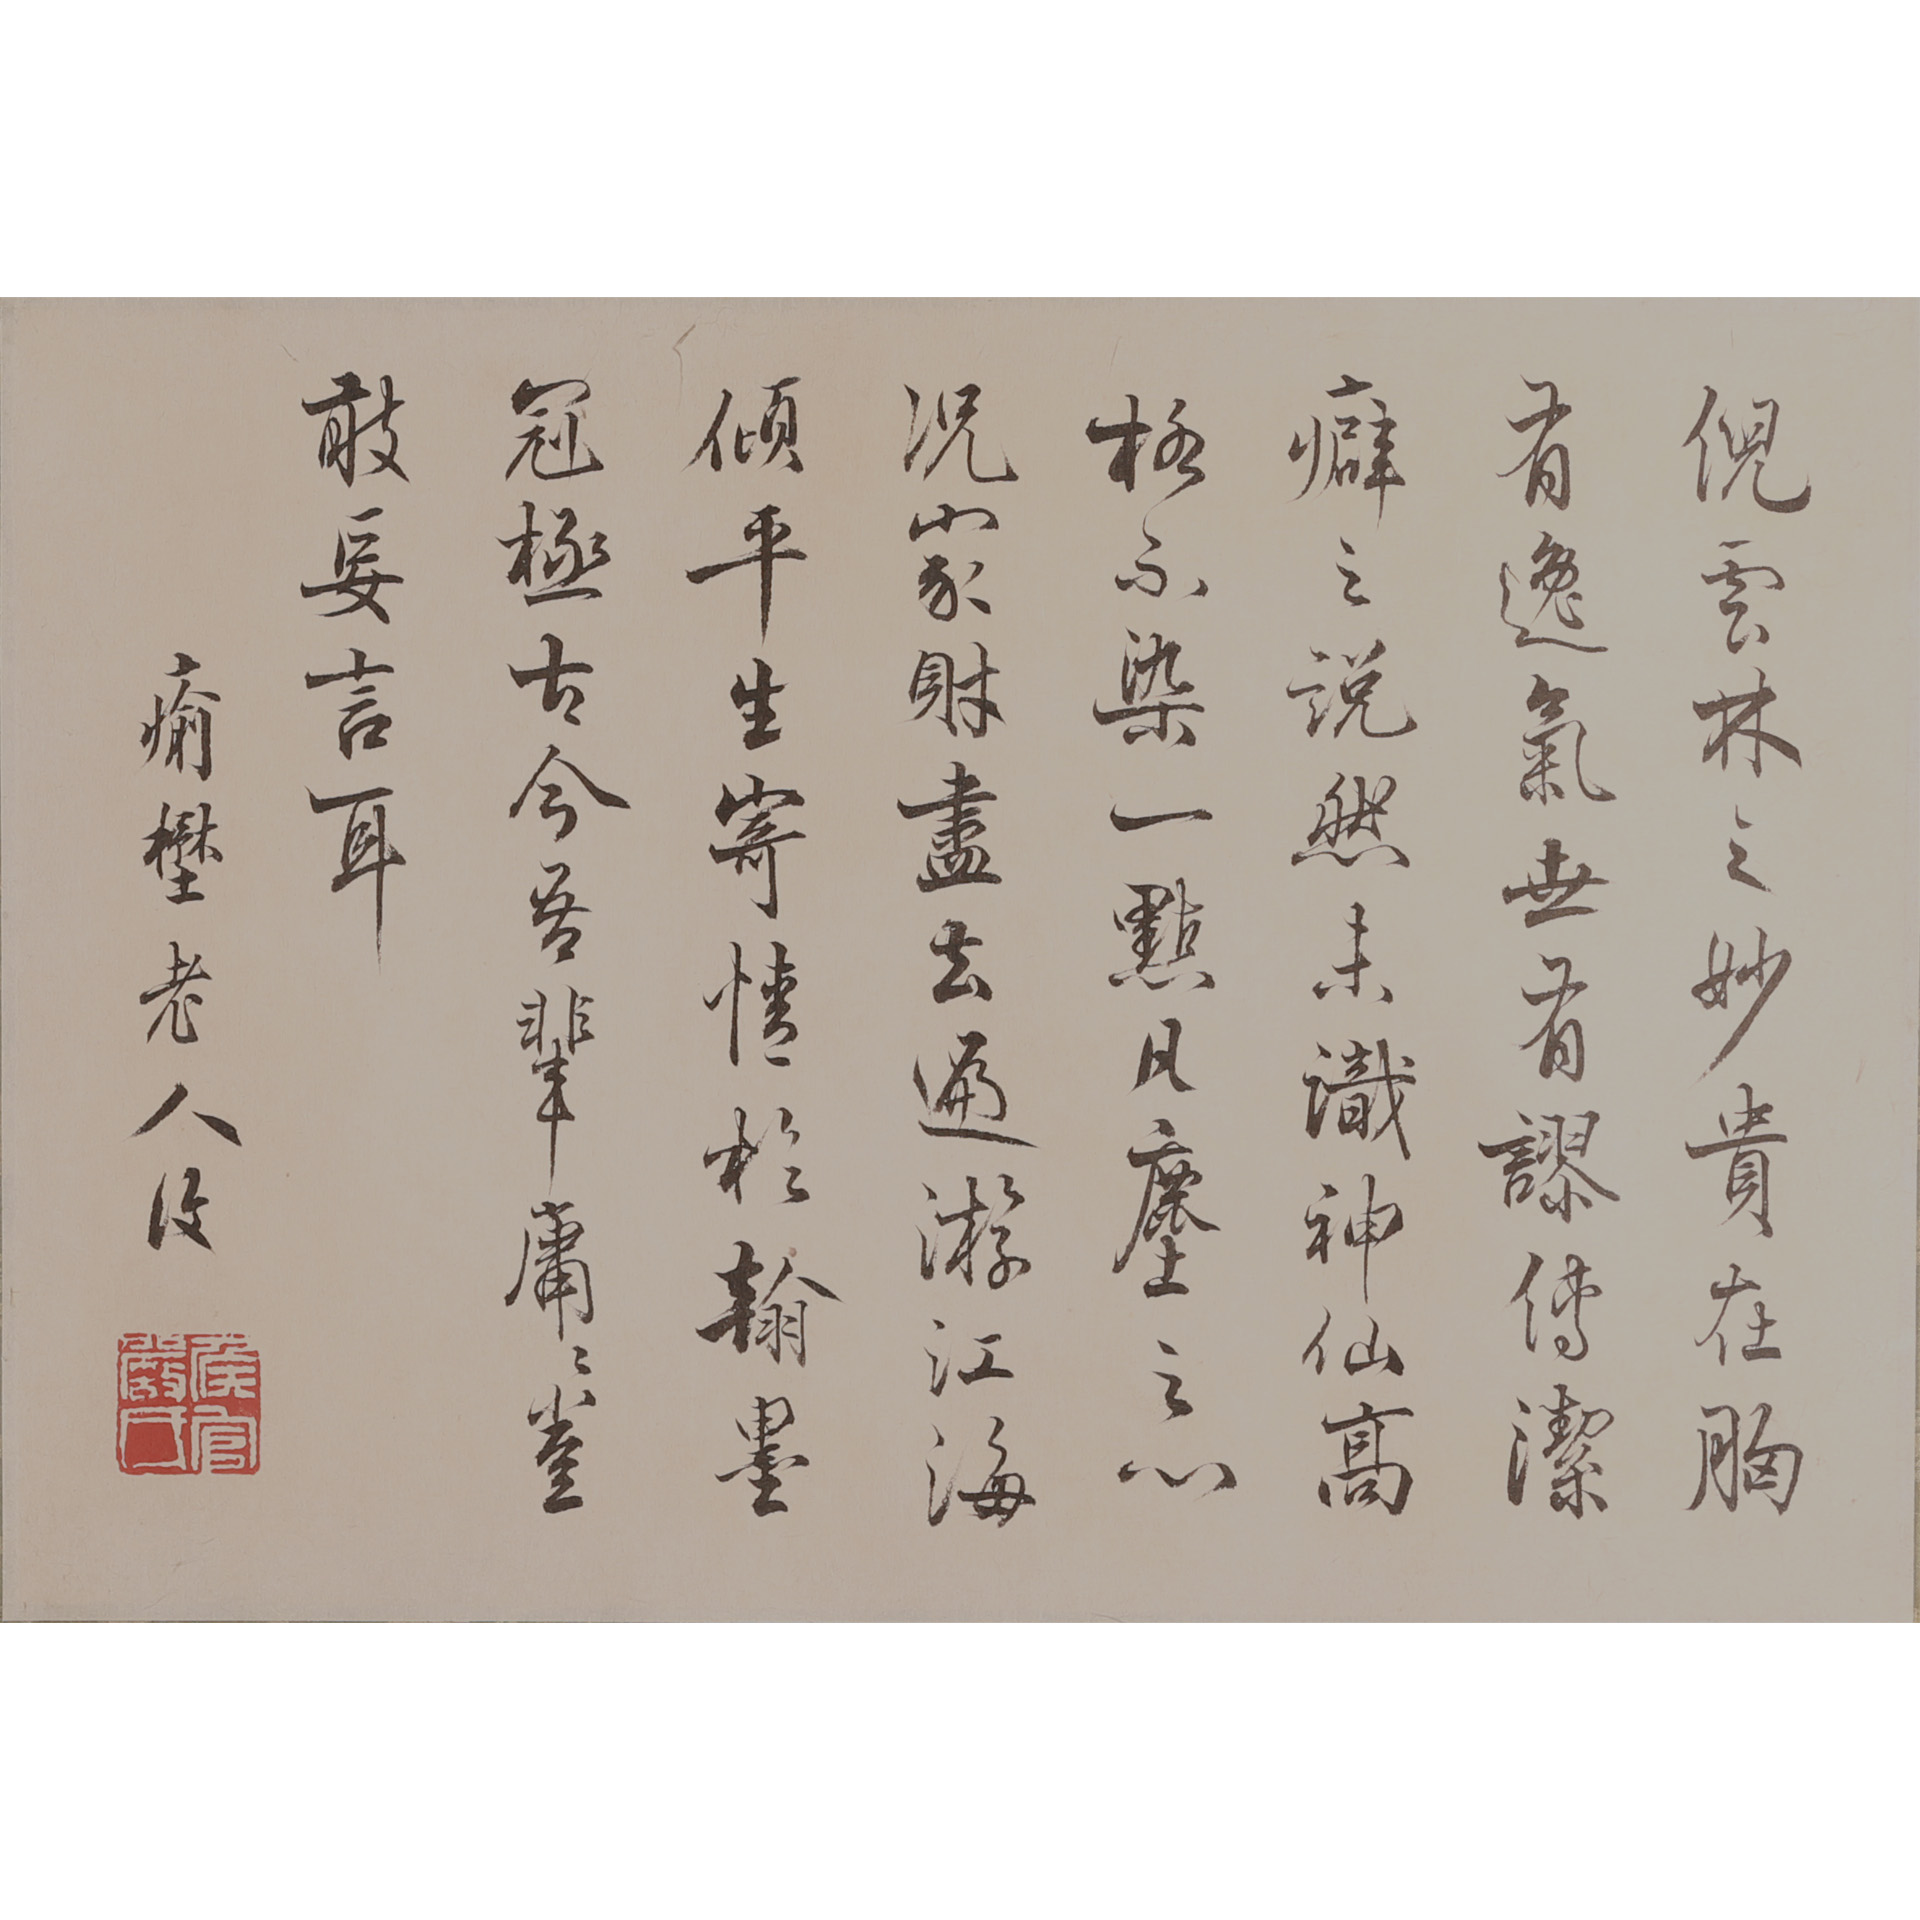 倪雲林之妙貴在胸
有逸氣世有謬傳潔
癖之說然未識神仙高
格不染一點凡塵之心
況家財盡去遍游江海
傾平生寄情於翰墨
冠極古今吾輩庸庸豈
敢妄言耳
瘉壄老人復
侯官嚴復